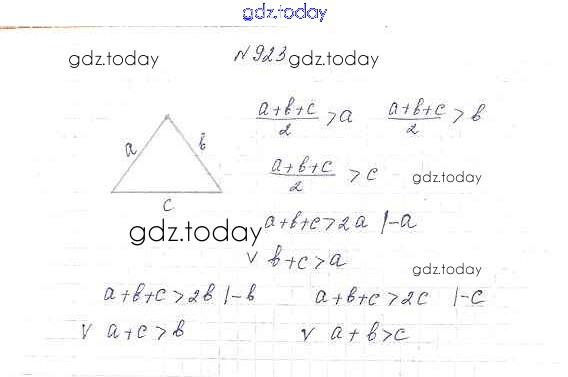 gdz.today
gdz.today N 923 gdz.today
(a+b+c)/2 > a (a+b+c)/2 > b
a b
(a+b+c)/2 > c gdz.today
c
gdz.today a+b+c>2a |-a
v b+c>a
gdz.today
a+b+c>2b |-b a+b+c>2c |-c
v a+c>b v a+b>c